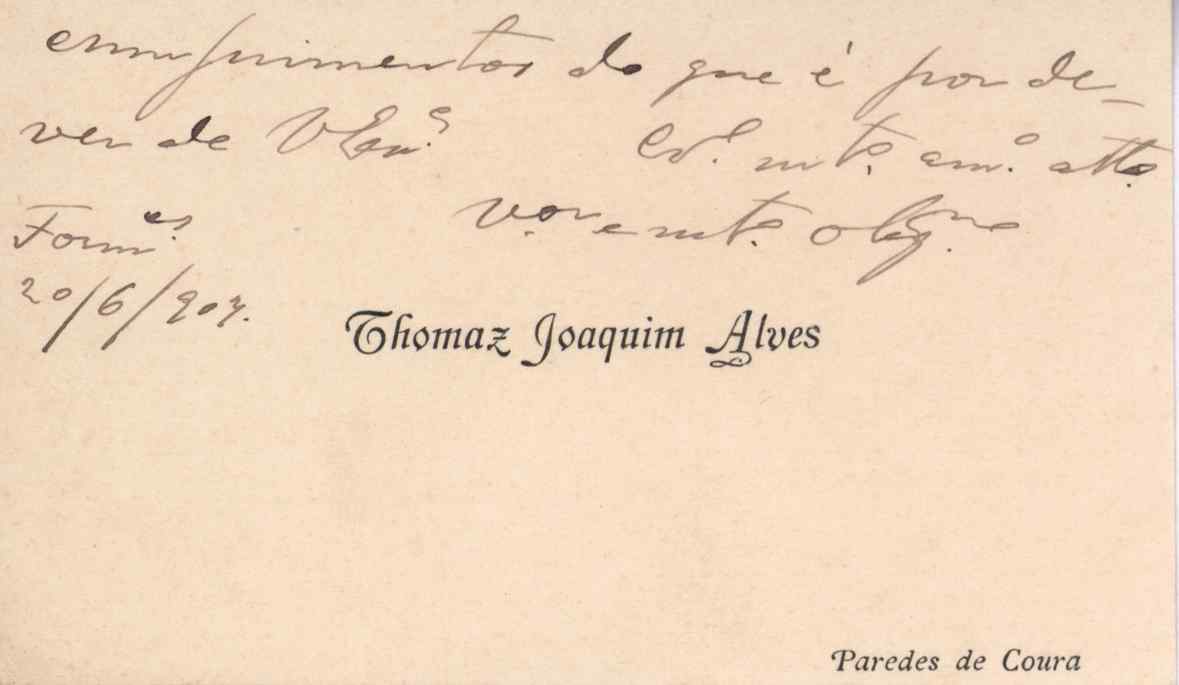 cumprimentos do que é por de-
ver de V Ex.ª Cr.º mt.º am.º att.º
v.or e mt.º obg.mo
Form.es
20/6/907.
Thomaz Joaquim Alves
Paredes de Coura